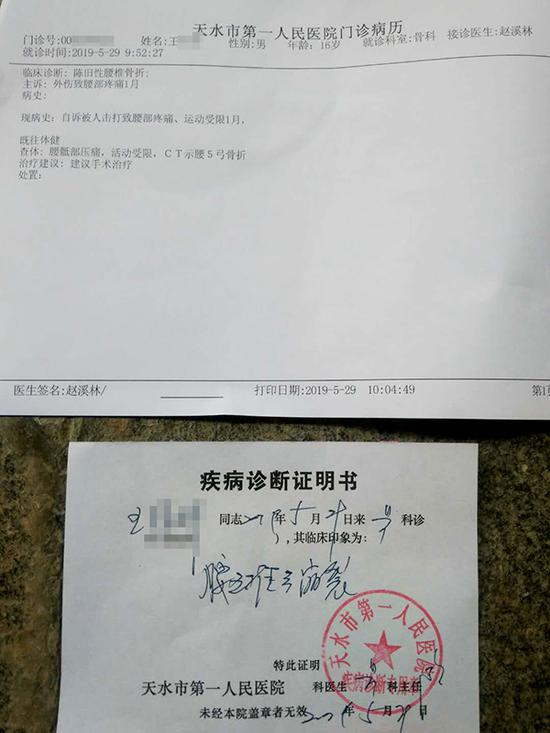 天水市第一人民医院门诊病历
门诊号:00 姓名:王 性别:男 年龄:16岁 就诊科室:骨科 接诊医生:赵溪林
就诊时间:2019-5-29 9:52:27
临床诊断: 陈旧性腰椎骨折;
主诉: 外伤致腰部疼痛1月
病史:
现病史: 自诉被人击打致腰部疼痛、运动受限1月,
既往体健
查体: 腰骶部压痛, 活动受限, CT示腰5弓骨折
治疗建议: 建议手术治疗
处置:
医生签名:赵溪林/ 打印日期:2019-5-29 10:04:49 第1页
疾病诊断证明书
王 同志 年5月29日来骨科诊
,其临床印象为:
特此证明
天水市第一人民医院 科医生 科主任
未经本院盖章者无效 年5月29日
天水市第一人民医院
疾病诊断专用章